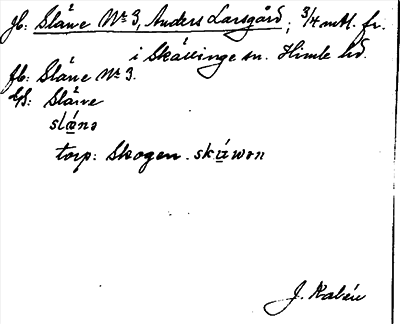 Jb: Slåne Nr 3, Anders Larsgård; 3/4 mtl. fr.
i Skällinge sn. Himle hd.
Jb: Slåne Nr 3.
Slåne
slånə
torp: Skogen. skúwən
J. Kalén